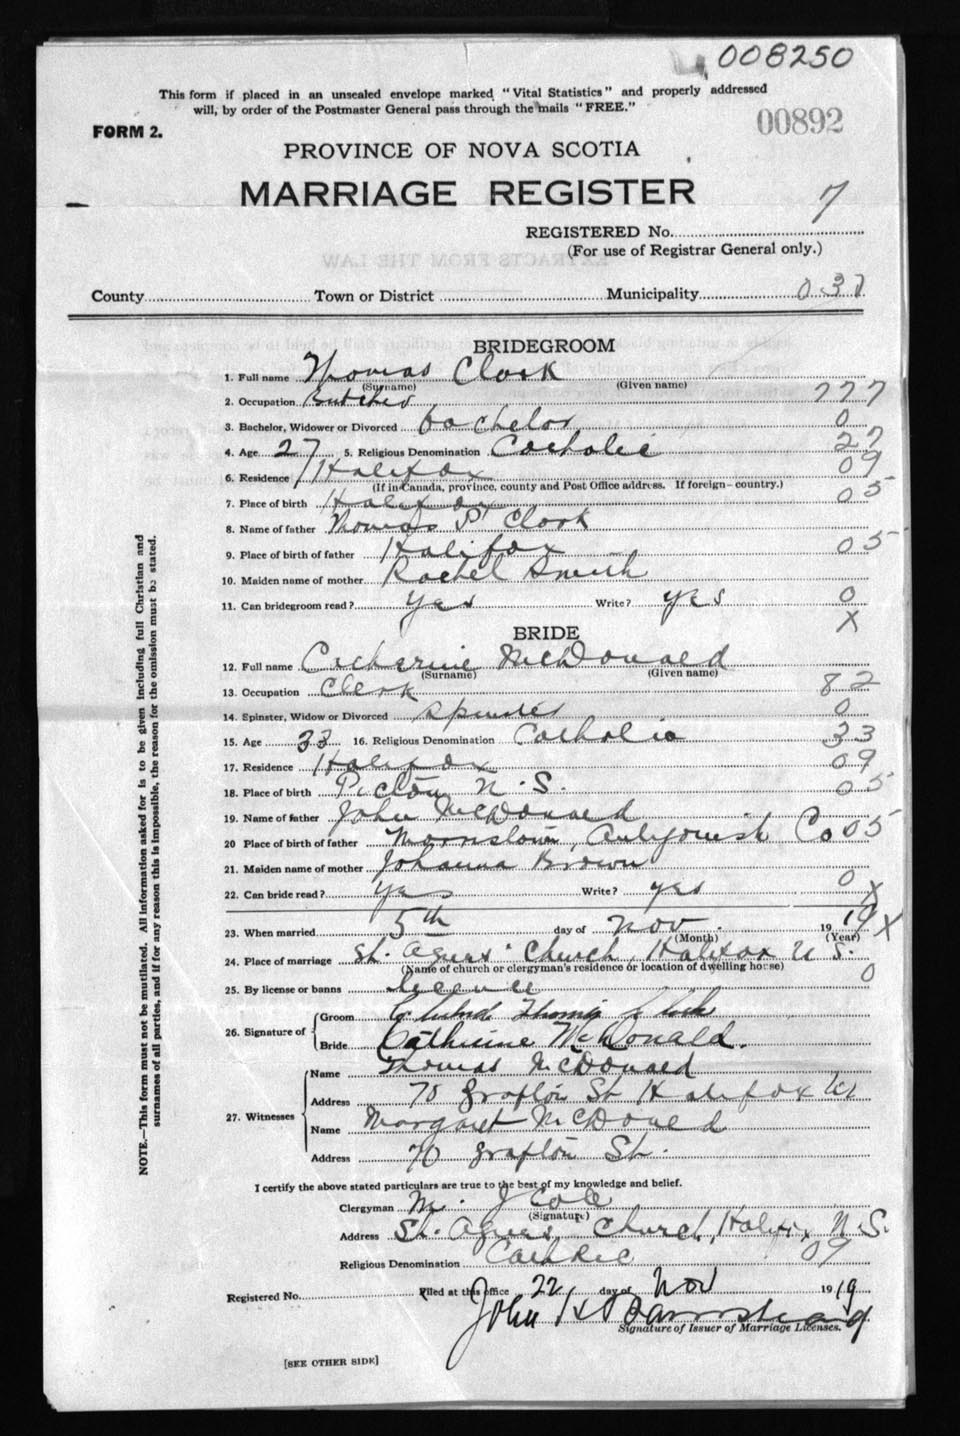 008250
This form if placed in an unsealed envelope marked "Vital Statistics" and properly addressed
will, by order of the Postmaster General pass through the mails "FREE."
FORM 2.
00892
PROVINCE OF NOVA SCOTIA
MARRIAGE REGISTER
7
REGISTERED No.
(For use of Registrar General only.)
EXTRACTS FROM THE LAW
County Town or District Municipality 031
BRIDEGROOM
1. Full name Thomas Clark
(Surname) (Given name)
2. Occupation Butcher 777
3. Bachelor, Widower or Divorced bachelor 0
4. Age 27 5. Religious Denomination Catholic 27
6. Residence Halifax 09
(If in Canada, province, county and Post Office address. If foreign—country.)
7. Place of birth Halifax 05
8. Name of father Thomas P Clark
9. Place of birth of father Halifax 05
10. Maiden name of mother Rachel Smith
11. Can bridegroom read? yes Write? yes 0
X
BRIDE
12. Full name Catherine McDonald
(Surname) (Given name)
13. Occupation Clerk 82
14. Spinster, Widow or Divorced spinster 0
15. Age 33 16. Religious Denomination Catholic 33
17. Residence Halifax 09
18. Place of birth Pictou N.S. 05
19. Name of father John McDonald
20 Place of birth of father Antigonish Co 05
21. Maiden name of mother Johanna Brown
22. Can bride read? yes Write? yes 0 X
23. When married 5th day of Nov. 1919 X
(Month) (Year)
24. Place of marriage St. Agnes Church, Halifax N S.
(Name of church or clergyman's residence or location of dwelling house)
25. By license or banns license 0
26. Signature of
Groom Thomas
Bride Catherine McDonald.
27. Witnesses
Name Thomas McDonald
Address 70 Grafton St Halifax
Name Margaret McDonald
Address 70 Grafton St.
I certify the above stated particulars are true to the best of my knowledge and belief.
Clergyman M. J Cole
(Signature)
Address St. Agnes Church, Halifax N.S.
09
Religious Denomination Catholic
Registered No. Filed at this office 22 day of Nov 1919
John H Barnstead
Signature of Issuer of Marriage Licenses.
[SEE OTHER SIDE]
NOTE.—This form must not be mutilated. All information asked for is to be given including full Christian and
surnames of all parties, and if for any reason this is impossible, the reason for the omission must be stated.